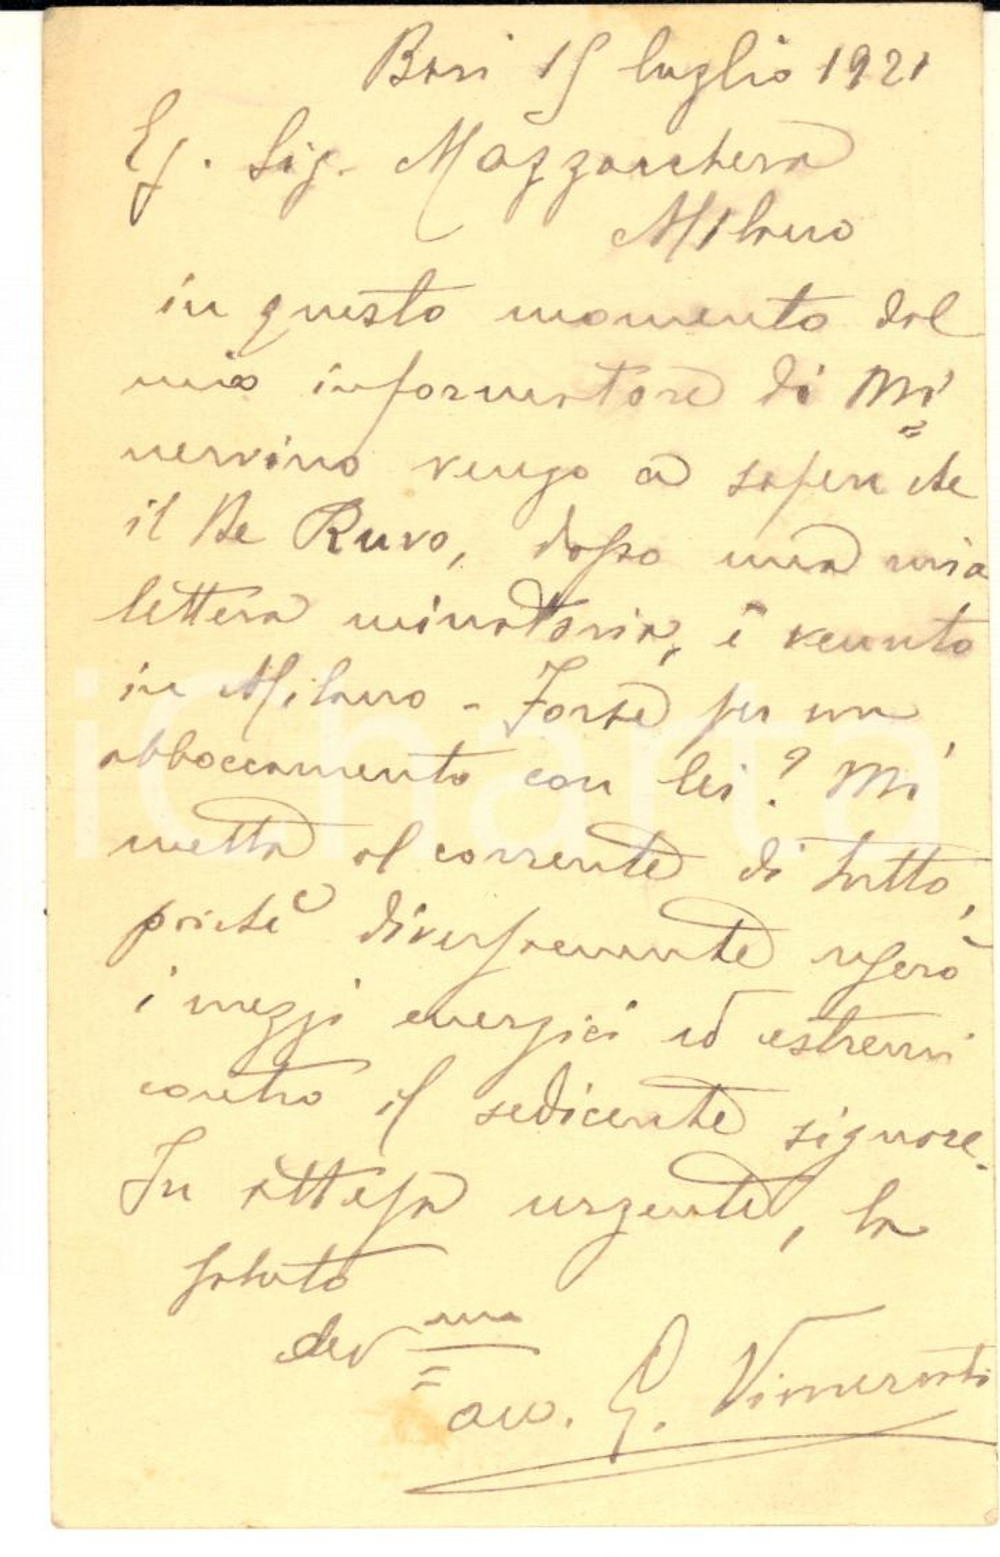 Bari 15 luglio 1921
Eg. Sig. Mazzucchera
Milano
in questo momento dal
mio informatore di Mi
nervino vengo a saper che
il De Ruvo, dopo una mia
lettera minatoria, è venuto
in Milano - Forse per un
abboccamento con lei? Mi
metta al corrente di tutto,
poichè diversamente userò
i mezzi energici ed estremi
contro il sedicente signore.
In attesa urgente, la
saluto
dev ma
avv. G.
iCharta